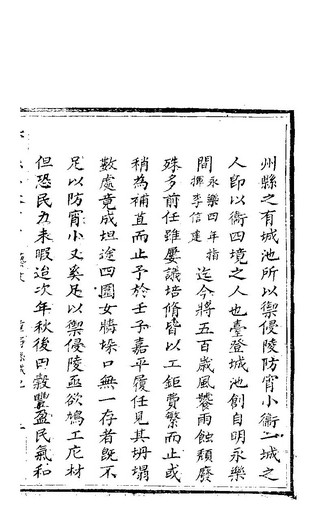 州縣之有城池所以禦侵陵防宵小衞一城之
人即以衞四境之人也臺登城池創自明永樂
間永樂四年指揮李信建迄今將五百歲風饕雨蝕頽廢
殊多前任雖屢議培脩皆以工鉅費繁而止或
稍為補苴而止予於壬子嘉平履任見其坍塌
數處竟成坦途四圍女墻垛口無一存者旣不
足以防宵小又奚足以禦侵陵亟欲鳩工庀材
但恐民力未暇迨次年秋後四穀豐盈民氣和